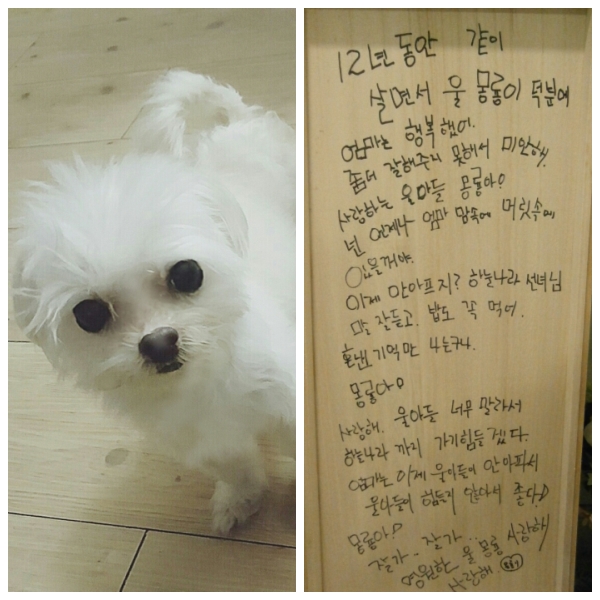 12년 동안 같이
살면서 울 몽룡이 덕분에
엄마는 행복했어.
좀더 잘해주지 못해서 미안해.
사랑하는 울아들 몽룡아?
넌 언제나 엄마 맘속에 머릿속에
있을꺼야.
이제 안아프지? 하늘나라 선녀님
말 잘듣고. 밥도 꼭 먹어.
기억만 나는구나.
몽룡아
사랑해. 울아들 너무 말라서
하늘나라 까지 가기힘들겠다.
엄마는 이제 울아들이 안아파서
울아들이 힘들지 않아서 좋다
몽룡아
잘가 - 잘가..
영원한 울 몽룡 사랑해
사랑해